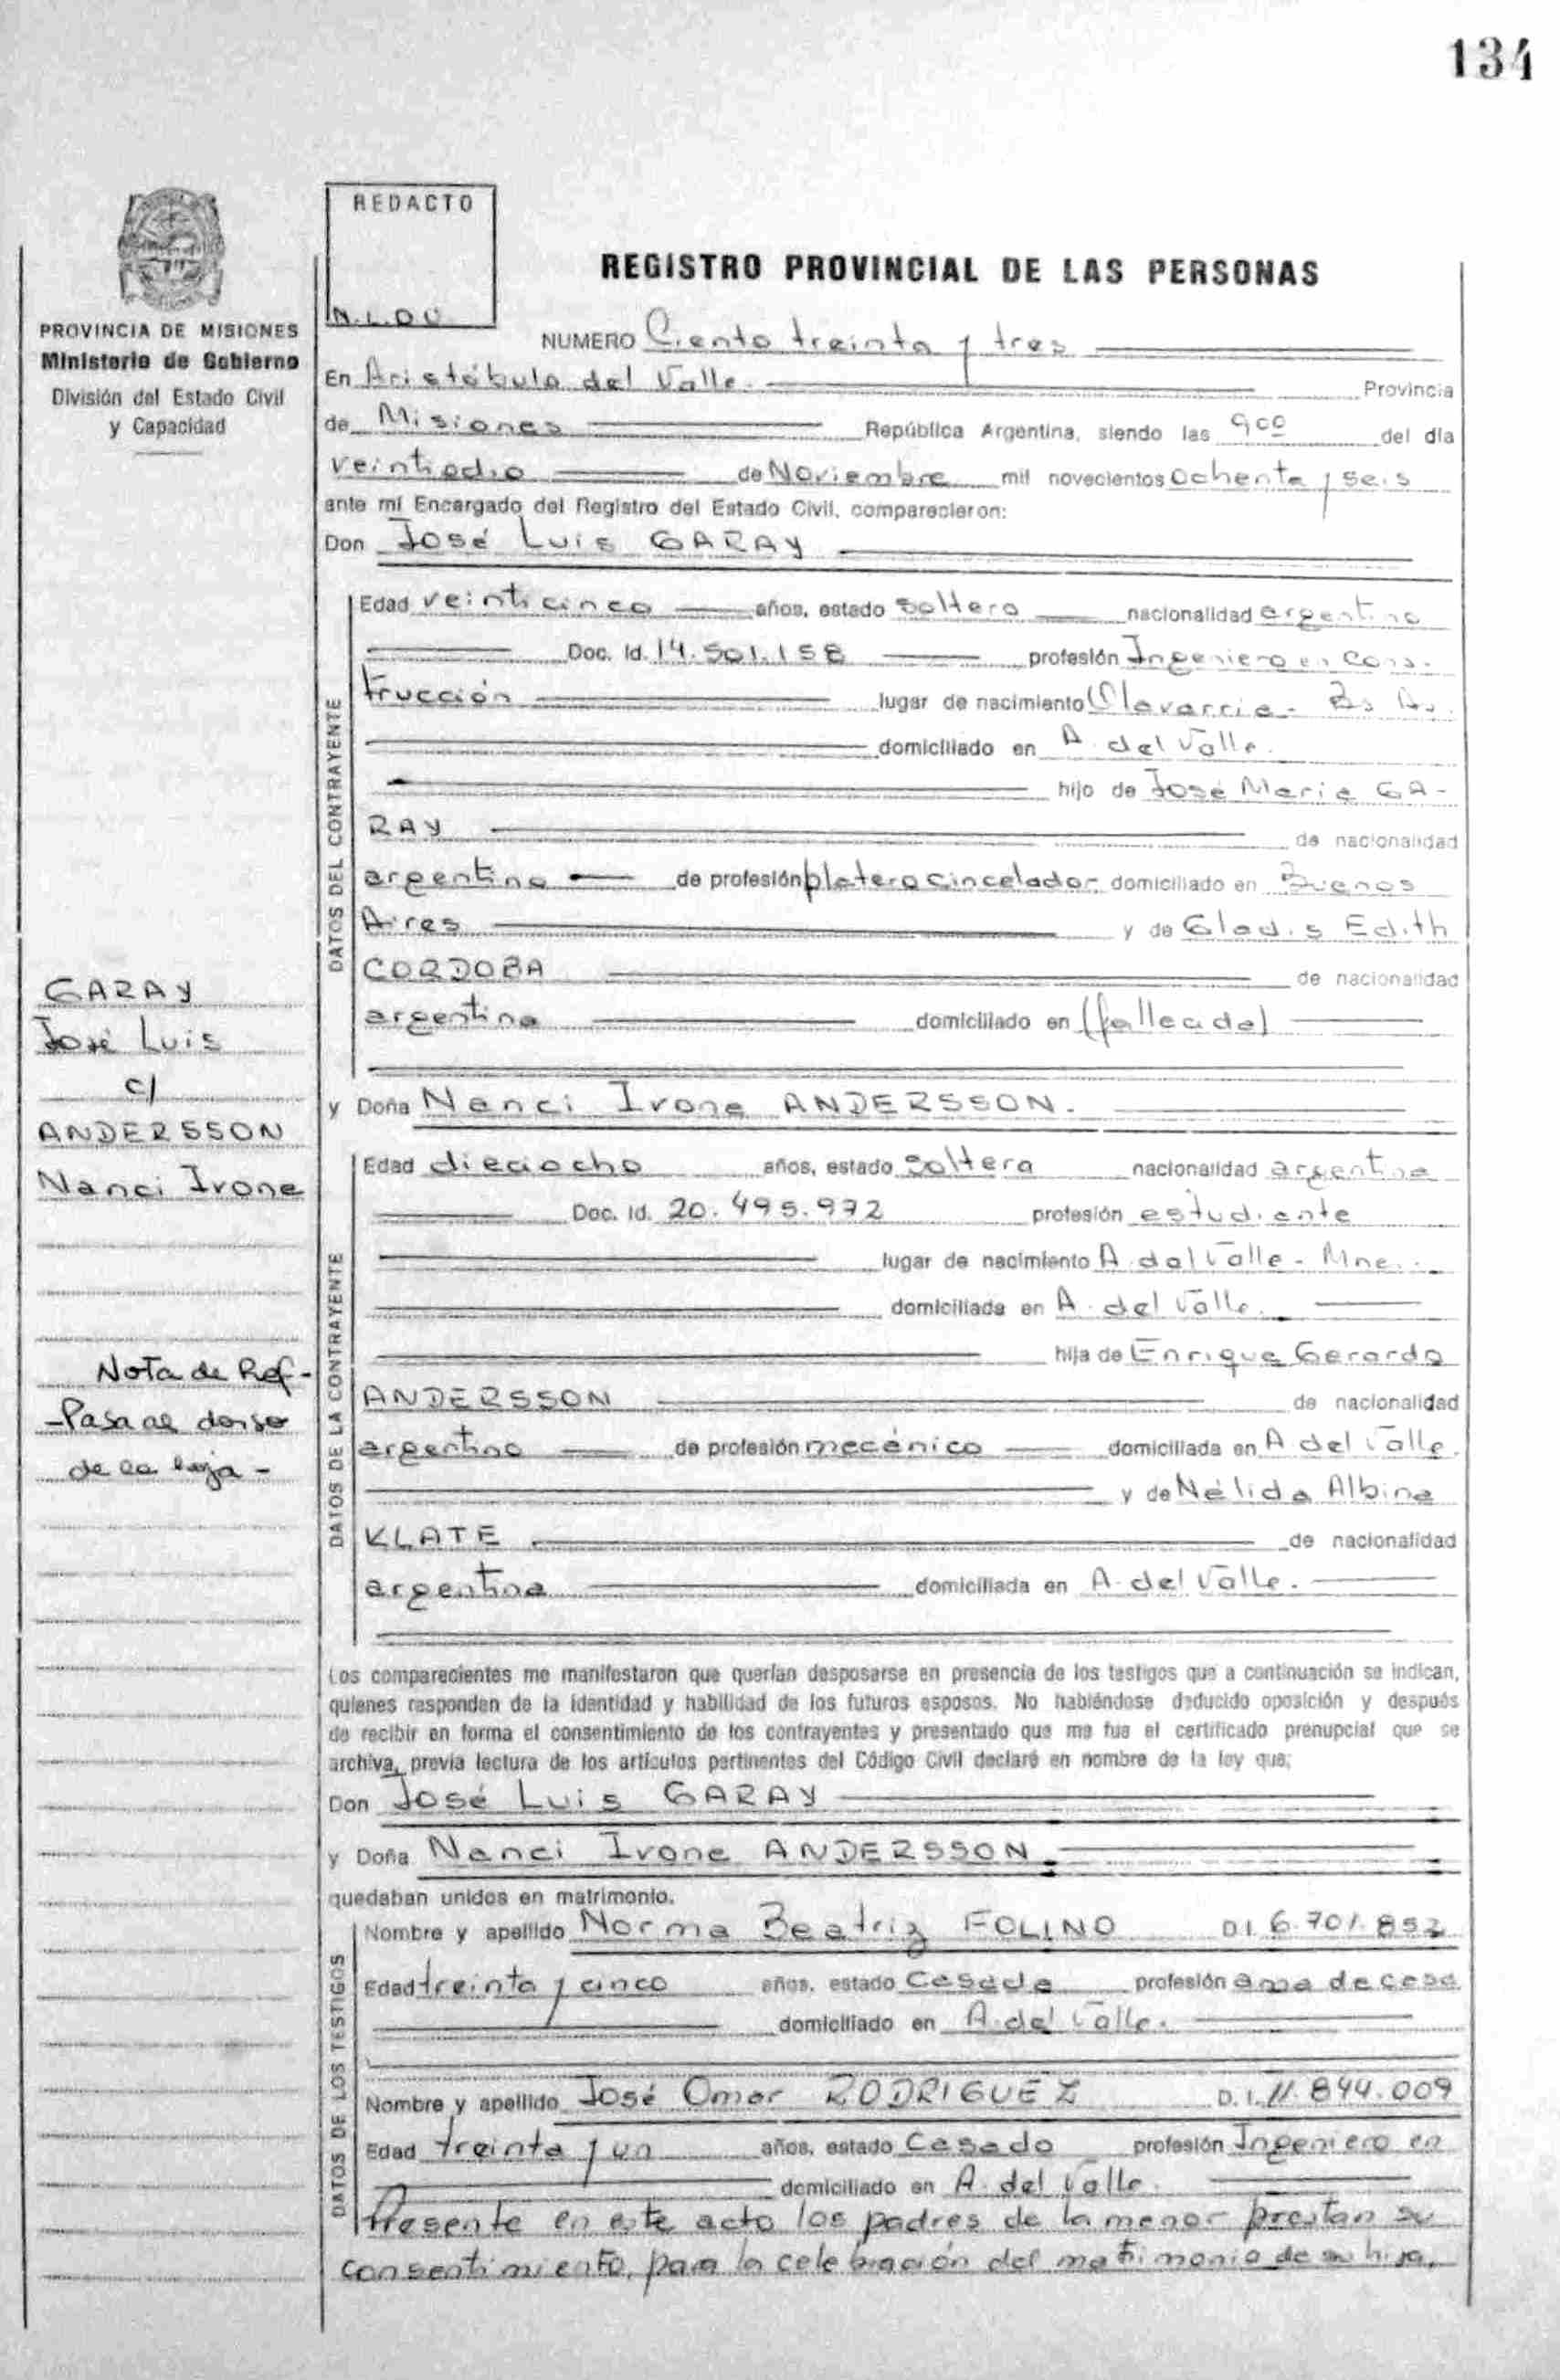 134
REDACTO
REGISTRO PROVINCIAL DE LAS PERSONAS
PROVINCIA DE MISIONES
Ministerio de Gobierno
División del Estado Civil
y Capacidad
NUMERO Ciento treinta y tres
En Aristóbulo del Valle. Provincia
de Misiones República Argentina, siendo las 9 00 del día
veintiocho de Noviembre mil novecientos Ochenta y seis
ante mí Encargado del Registro del Estado Civil, comparecieron:
Don José Luis GARAY
DATOS DEL CONTRAYENTE
Edad veinticinco años, estado soltero nacionalidad argentino
Doc. Id. 14.501.158 profesión Ingeniero en Cons-
trucción lugar de nacimiento Olavarria - Bs As.
domiciliado en A. del Valle.
hijo de José Maria GA-
RAY de nacionalidad
argentino de profesión platero cincelador domiciliado en Buenos
Aires y de Gladis Edith
CORDOBA de nacionalidad
argentina domiciliado en (fallecida)
GARAY
José Luis
c/
ANDERSSON
Nanci Ivone
y Doña Nanci Ivone ANDERSSON.
DATOS DE LA CONTRAYENTE
Edad dieciocho años, estado soltera nacionalidad argentina
Doc. Id. 20.495.972 profesión estudiante
lugar de nacimiento A. del Valle - Mnes.
domiciliada en A. del Valle.
hija de Enrique Gerardo
ANDERSSON de nacionalidad
argentino de profesión mecánico domiciliada en A del Valle.
y de Nélida Albina
KLATE de nacionalidad
argentina domiciliada en A. del Valle.
Nota de Ref-
-Pasa al dorso
de la hoja-
Los comparecientes me manifestaron que querían desposarse en presencia de los testigos que a continuación se indican,
quienes responden de la identidad y habilidad de los futuros esposos. No habiéndose deducido oposición y después
de recibir en forma el consentimiento de los contrayentes y presentado que me fue el certificado prenupcial que se
archiva, previa lectura de los artículos pertinentes del Código Civil declaré en nombre de la ley que;
Don José Luis GARAY
y Doña Nanci Ivone ANDERSSON.
quedaban unidos en matrimonio.
DATOS DE LOS TESTIGOS
Nombre y apellido Norma Beatriz FOLINO D.I. 6.701.852
Edad treinta y cinco años, estado Casada profesión ama de casa
domiciliado en A. del Valle.
Nombre y apellido José Omar RODRIGUEZ D.I. 11.844.009
Edad treinta y un años, estado Casado profesión Ingeniero en
domiciliado en A. del Valle.
Presente en este acto los padres de la menor prestan su
consentimiento, para la celebración del matrimonio de su hija.